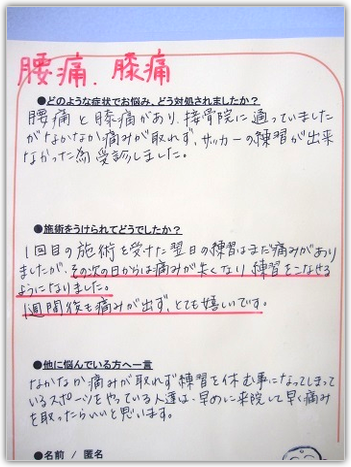 腰痛、膝痛
●どのような症状でお悩み、どう対処されましたか？
腰痛と膝痛があり、接骨院に通っていました
がなかなか痛みが取れず、サッカーの練習が出来
なかった為受診しました。
●施術をうけられてどうでしたか？
1回目の施術を受けた翌日の練習はまだ痛みがあり
ましたが、その次の日からは痛みが失くなり練習をこなせる
ようになりました。
1週間後も痛みが出ず、とても嬉しいです。
●他に悩んでいる方へ一言
なかなか痛みが取れず練習を休む事になってしまって
いるスポーツをやっている人達は、早めに来院して早く痛み
を取ったらいいと思います。
●名前 / 匿名